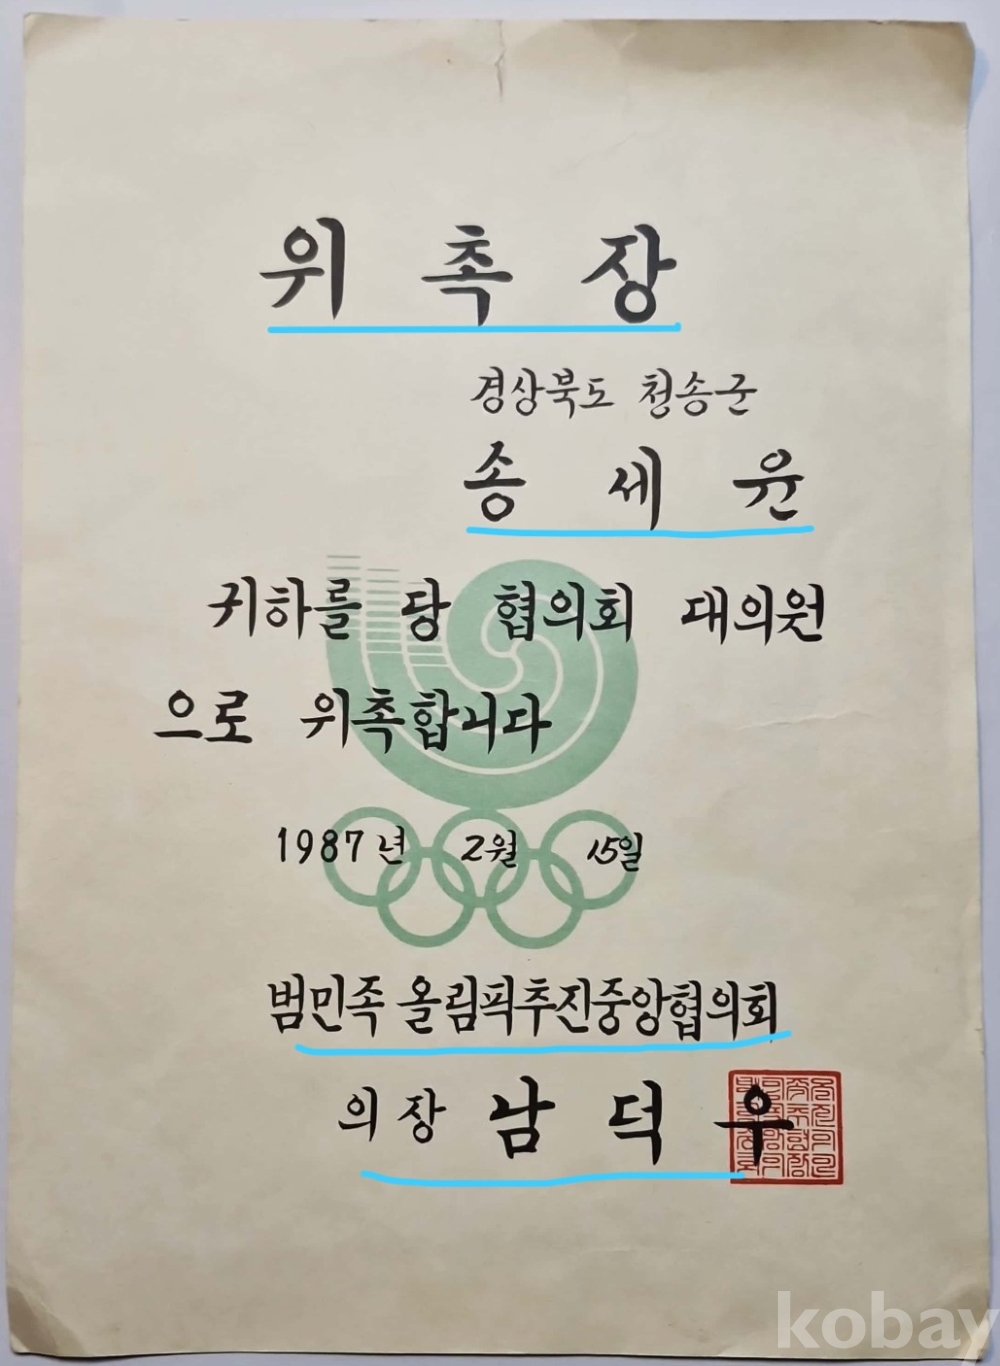 위 촉 장
경상북도 청송군
송 세 윤
귀하를 당 협의회 대의원
으로 위촉합니다
1987년 2월 15일
범민족 올림픽추진중앙협의회
의장 남 덕 우
kobay